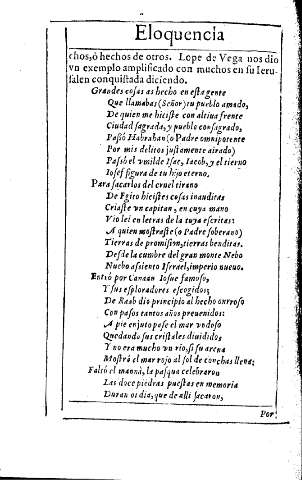 Eloquencia
chos, ó hechos de otros. Lope de Vega nos dio
vn exemplo amplificado con muchos en su Ieru-
salen conquistada diciendo.
Grandes cosas as hecho en esta gente
Que llamabas (Señor) tu pueblo amado,
De quien me hiciste con altiua frente
Ciudad sagrada, y pueblo consagrado,
Pasó Habrahan (o Padre omnipotente
Por mis delitos justamente airado)
Pasó el vmilde Isac, Iacob, y el tierno
Iosef figura de tu hijo eterno.
Para sacarlos del cruel tirano
De Egito hicistes cosas inauditas
Criaste vn capitan, en cuya mano
Vio lei en letras de la tuya escritas:
A quien mostraste (o Padre soberano)
Tierras de promision, tierras benditas.
Desde la cumbre del gran monte Nebo
Nucbo asiento Israel, imperio nueuo.
Entró por Canaan Iosue famoso,
Y sus esploradores escogidos;
De Raab dio principio al hecho onrroso
Con pasos tantos años preuenidos:
A pie enjuto pase el mar vndoso
Quedando sus cristales diuididos,
Y no era mucho vn rio, si su arena
Mostró el mar rojo al sol de conchas llena;
Faltó el manná, la pasqua celebraron
Las doce piedras puestas en memoria
Duran oi dia, que de alli sacaron,
Por